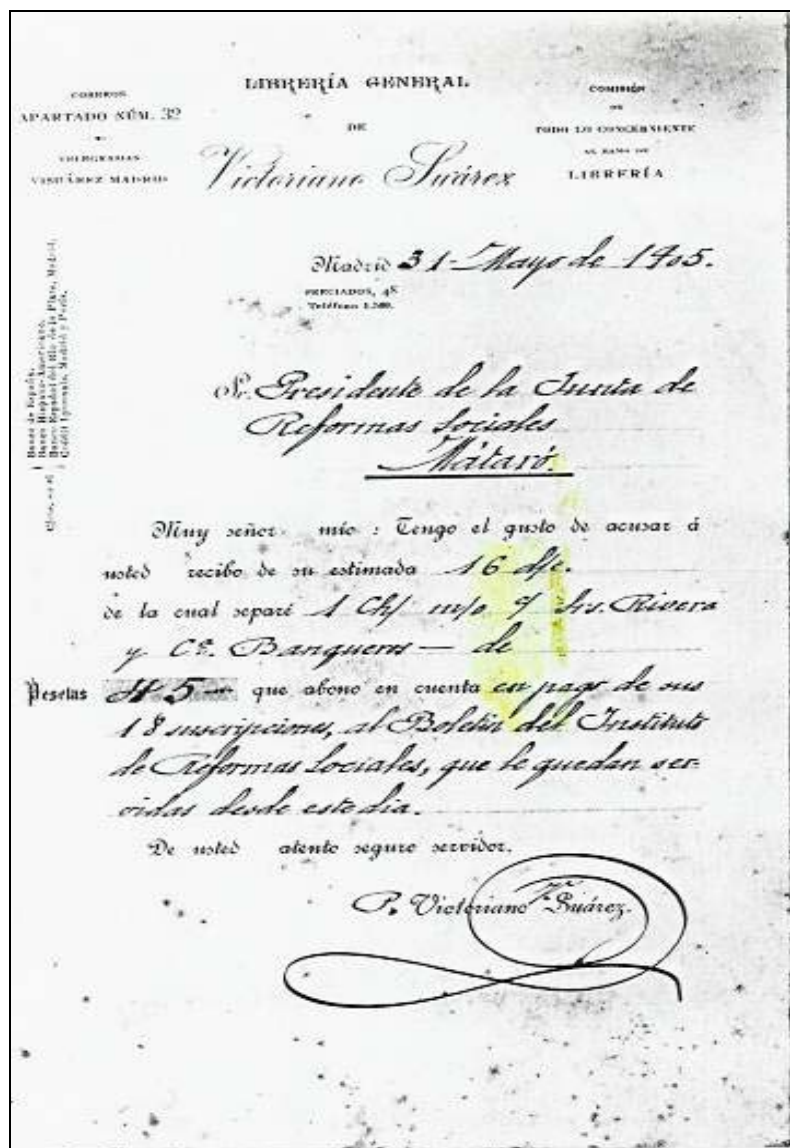 CORREOS
APARTADO NÚM. 32
TELEGRAMAS
VISUÁREZ MADRID
LIBRERÍA GENERAL
DE
Victoriano Suárez
COMISIÓN
DE
TODO LO CONCERNIENTE
AL RAMO DE
LIBRERÍA
Madrid 31 Mayo de 1905.
PRECIADOS, 48
Teléfono
Banco de España.
Banco Hispano-Americano.
Banco Español del Río de la Plata, Madrid.
Crédit Lyonnais, Madrid y París.
Sr. Presidente de la Junta de
Reformas Sociales
Mátaró.
Muy señor mío : Tengo el gusto de acusar á
usted recibo de su estimada 16
de la cual separé 1 Ch/ m/o Srs. Rivera
y Cª. Banqueros — de
Pesetas 45 — que abono en cuenta en pago de sus
18 suscripciones, al Boletín del Instituto
de Reformas Sociales, que le quedan ser-
vidas desde este dia.
De usted atento seguro servidor.
P. Victoriano Suárez.